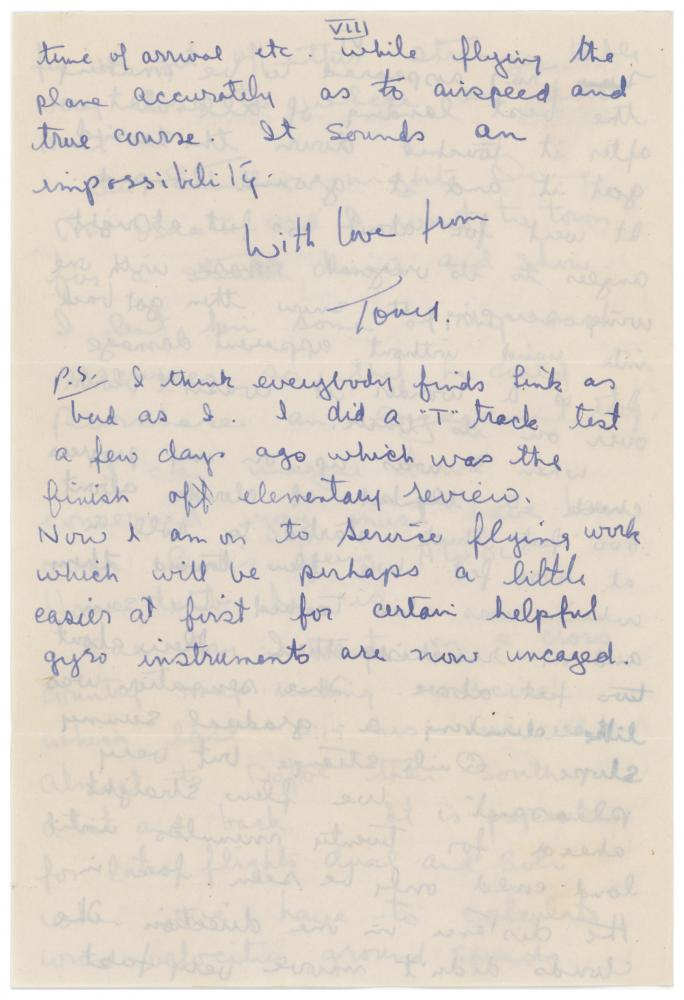 VII
time of arrival etc. while flying the
plane accurately as to airspeed and
true course. It sounds an
impossibility.
With love from
Tony.
P.S. I think everybody finds Link as
bad as I. I did a "T" track test
a few days ago which was the
finish off elementary review.
Now I am on to service flying work
which will be perhaps a little
easier at first for certain helpful
gyro instruments are now uncaged.